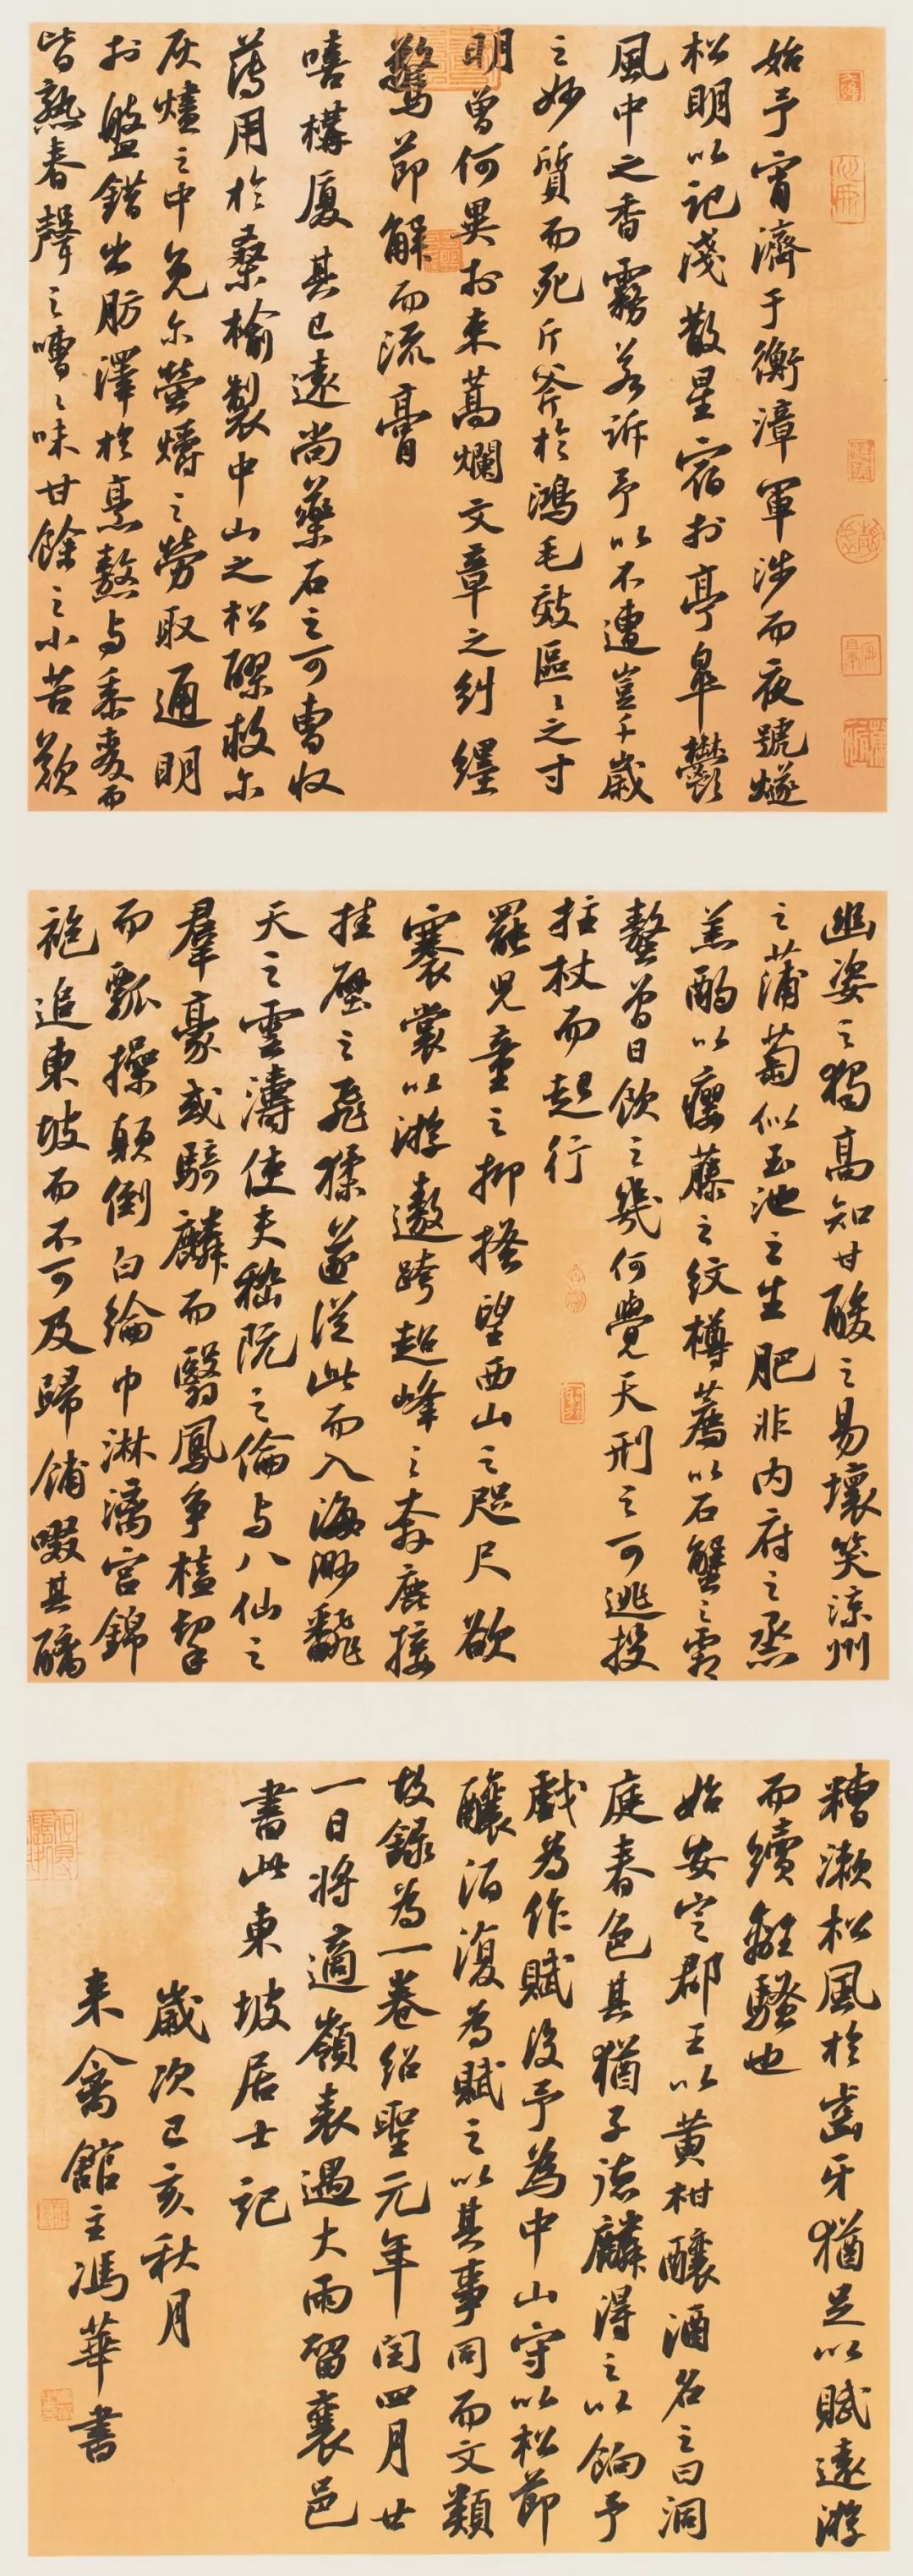 始予宵濟于衡漳軍涉而夜號燧
松明以記淺散星宿於亭皋鬱
風中之香霧若訴予以不遭豈千歲
之妙質而死斤斧於鴻毛效區〻之寸
明曾何異於束蒿爛文章之糾纆
驚節解而流膏
嘻構厦其已遠尚藥石之可曹收
薄用於桑榆製中山之松醪救尔
灰燼之中免尔螢爝之勞取通明
於盤錯出肪澤於烹熬与黍麥而
皆熟舂聲之嘈〻味甘餘之小苦歎
幽姿之獨高知甘酸之易壞笑涼州
之蒲萄似玉池之生肥非内府之烝
羔酌以癭藤之紋樽薦以石蟹之霜
螯曾日飲之幾何覺天刑之可逃投
拄杖而起行
罷兒童之抑搔望西山之咫尺欲
褰裳以游遨跨超峰之奔鹿接
挂壁之飛猱遂從此而入海渺翻
天之雲濤使夫嵇阮之倫与八仙之
羣豪或騎麟而翳鳳爭榼挈
而瓢操顛倒白綸巾淋漓宮錦
袍追東坡而不可及歸餔歠其醨
糟漱松風於齒牙猶足以賦遠游
而續離騷也
始安定郡王以黄柑釀酒名之曰洞
庭春色其猶子德麟得之以餉予
戲為作賦後予為中山守以松節
釀酒復為賦之以其事同而文類
故録為一卷紹聖元年閏四月廿
一日將適嶺表遇大雨留襄邑
書此東坡居士記
歲次己亥秋月
来禽館主馮華書